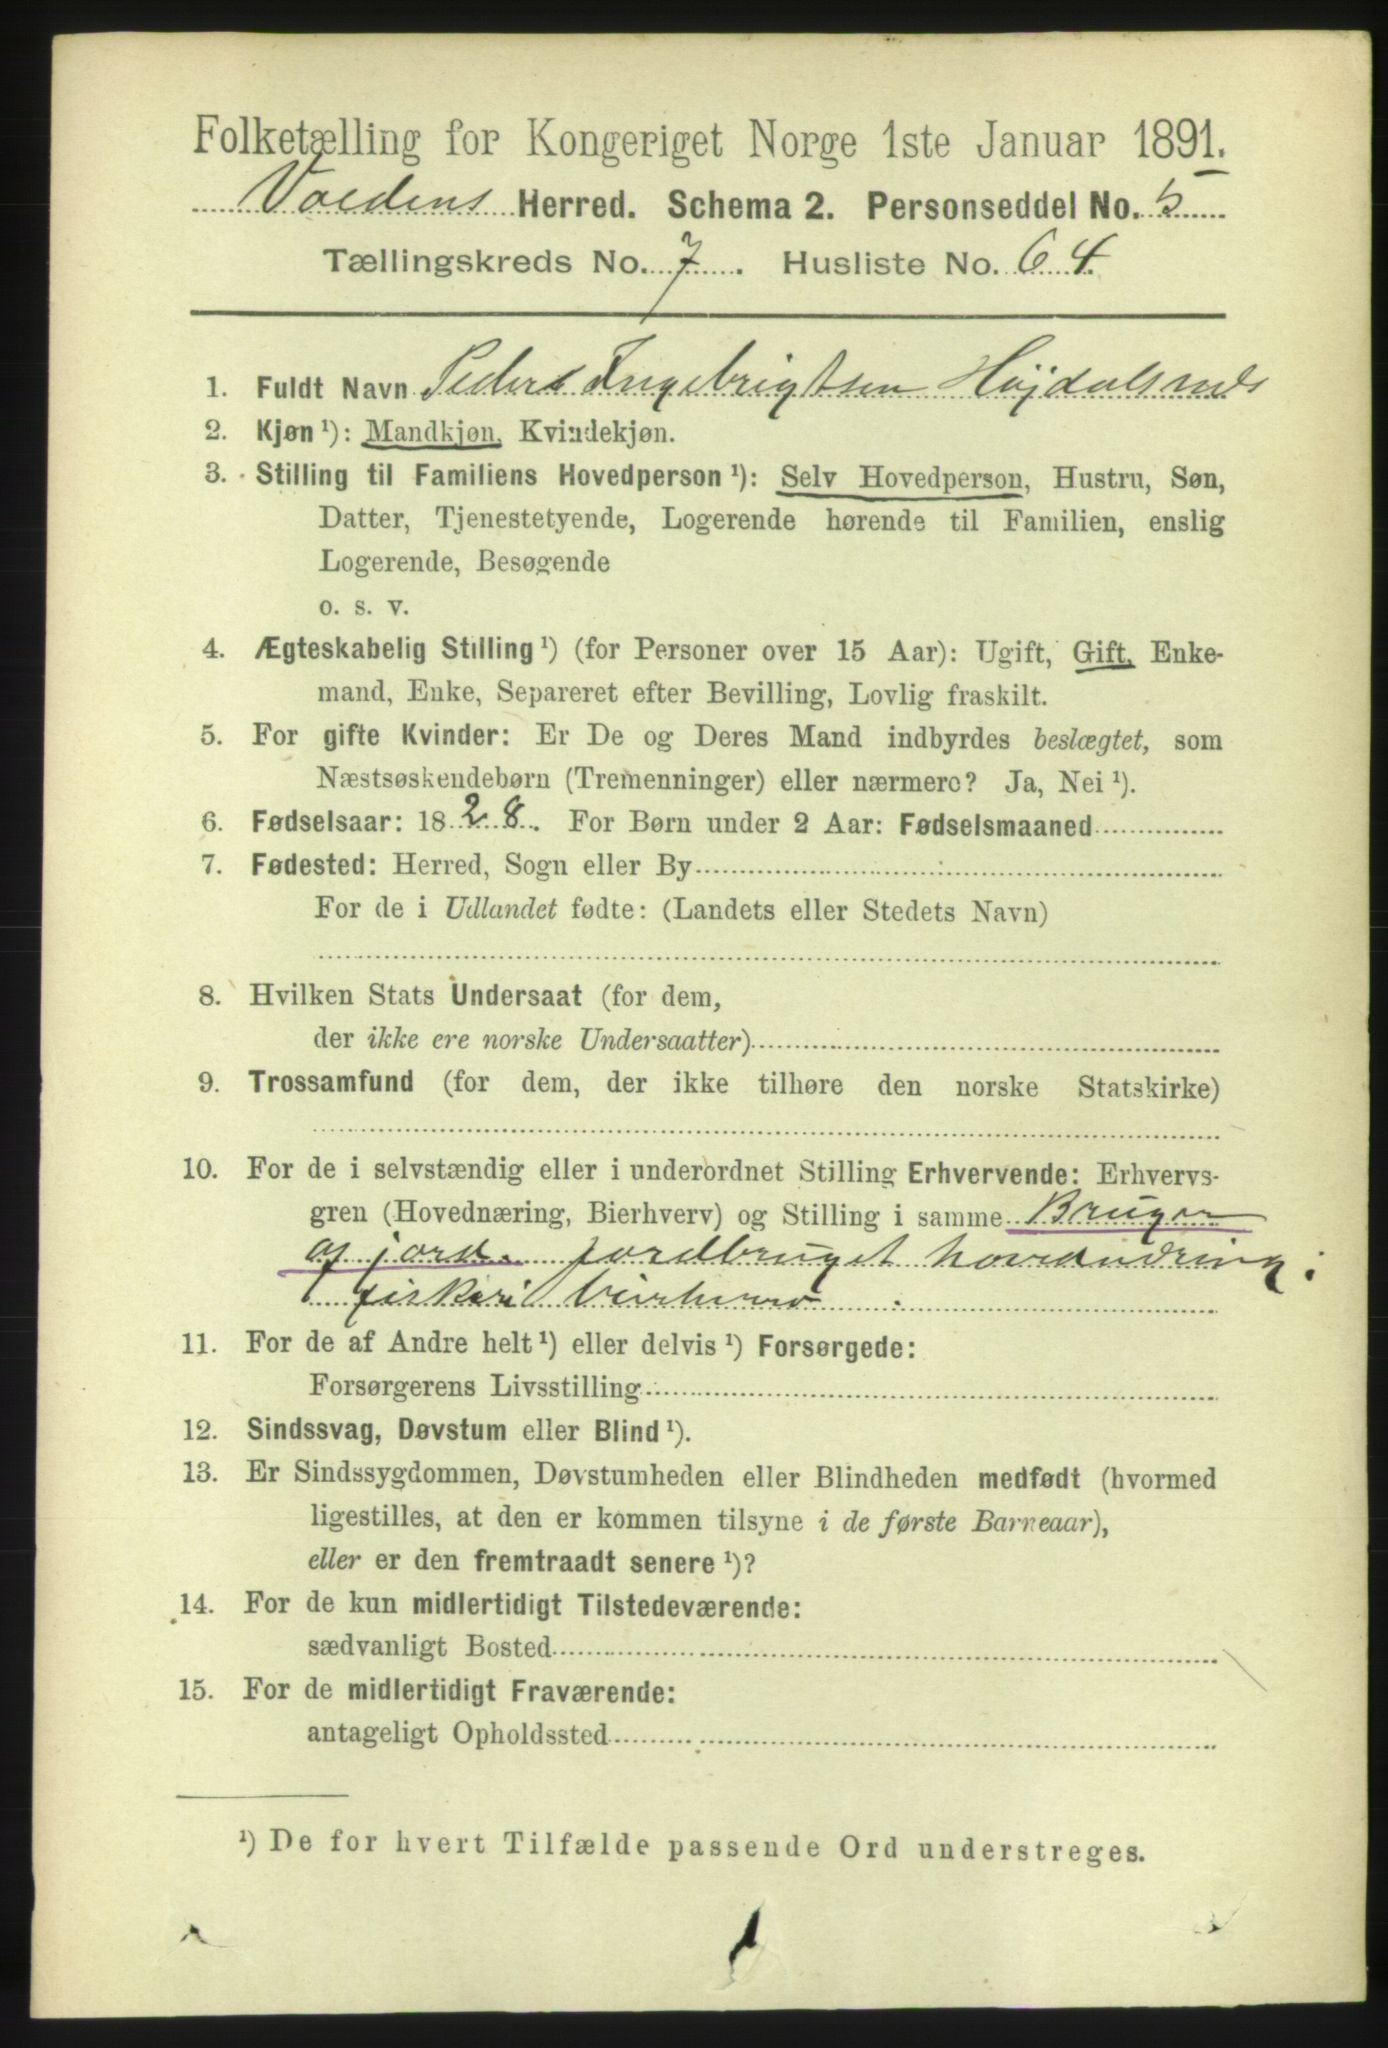 Folketælling for Kongeriget Norge 1ste Januar 1891.
Voldens Herred. Schema 2. Personseddel No. 5
Tællingskreds No. 7. Husliste No. 64.
1. Fuldt Navn Peder Ingebrigtsen Højdalsnes
2. Kjøn ¹): Mandkjøn, Kvindekjøn.
3. Stilling til Familiens Hovedperson ¹): Selv Hovedperson, Hustru, Søn,
Datter, Tjenestetyende, Logerende hørende til Familien, enslig
Logerende, Besøgende
o. s. v.
4. Ægteskabelig Stilling ¹) (for Personer over 15 Aar): Ugift, Gift, Enke-
mand, Enke, Separeret efter Bevilling, Lovlig fraskilt.
5. For gifte Kvinder: Er De og Deres Mand indbyrdes beslægtet, som
Næstsøskendebørn (Tremenninger) eller nærmere? Ja, Nei ¹).
6. Fødselsaar: 1828. For Børn under 2 Aar: Fødselsmaaned
7. Fødested: Herred, Sogn eller By
For de i Udlandet fødte: (Landets eller Stedets Navn)
8. Hvilken Stats Undersaat (for dem,
der ikke ere norske Undersaatter)
9. Trossamfund (for dem, der ikke tilhøre den norske Statskirke)
10. For de i selvstændig eller i underordnet Stilling Erhvervende: Erhvervs-
gren (Hovednæring, Bierhverv) og Stilling i samme Bruger
af jord. jordbruget hovednæring;
fiskeri
11. For de af Andre helt ¹) eller delvis ¹) Forsørgede:
Forsørgerens Livsstilling
12. Sindssvag, Døvstum eller Blind ¹).
13. Er Sindssygdommen, Døvstumheden eller Blindheden medfødt (hvormed
ligestilles, at den er kommen tilsyne i de første Barneaar),
eller er den fremtraadt senere ¹)?
14. For de kun midlertidigt Tilstedeværende:
sædvanligt Bosted
15. For de midlertidigt Fraværende:
antageligt Opholdssted
¹) De for hvert Tilfælde passende Ord understreges.